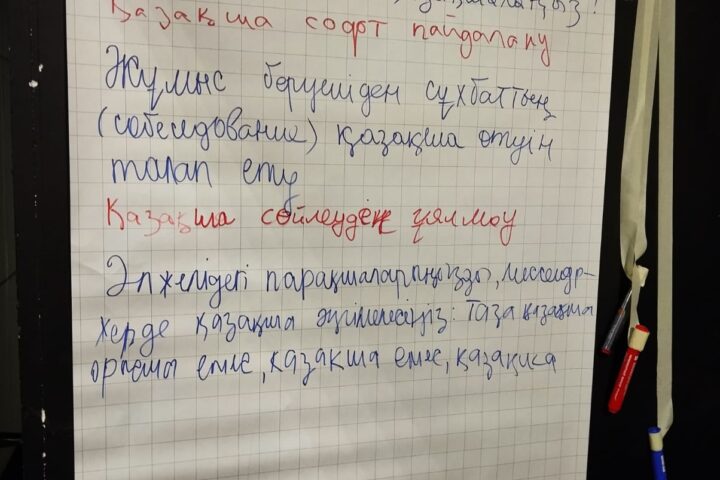 Қазақша софт пайдалану
Жұмыс берушіден сұхбаттың
(собеседование) қазақша өтуін
талап ету
Қазақша сөйлеуден ұялмау
Әлжелідегі парақшаларыңызды, мессендж-
керде қазақша әңгімелесіңіз: таза қазақша
орысша емле, қазақша емле, қазақша